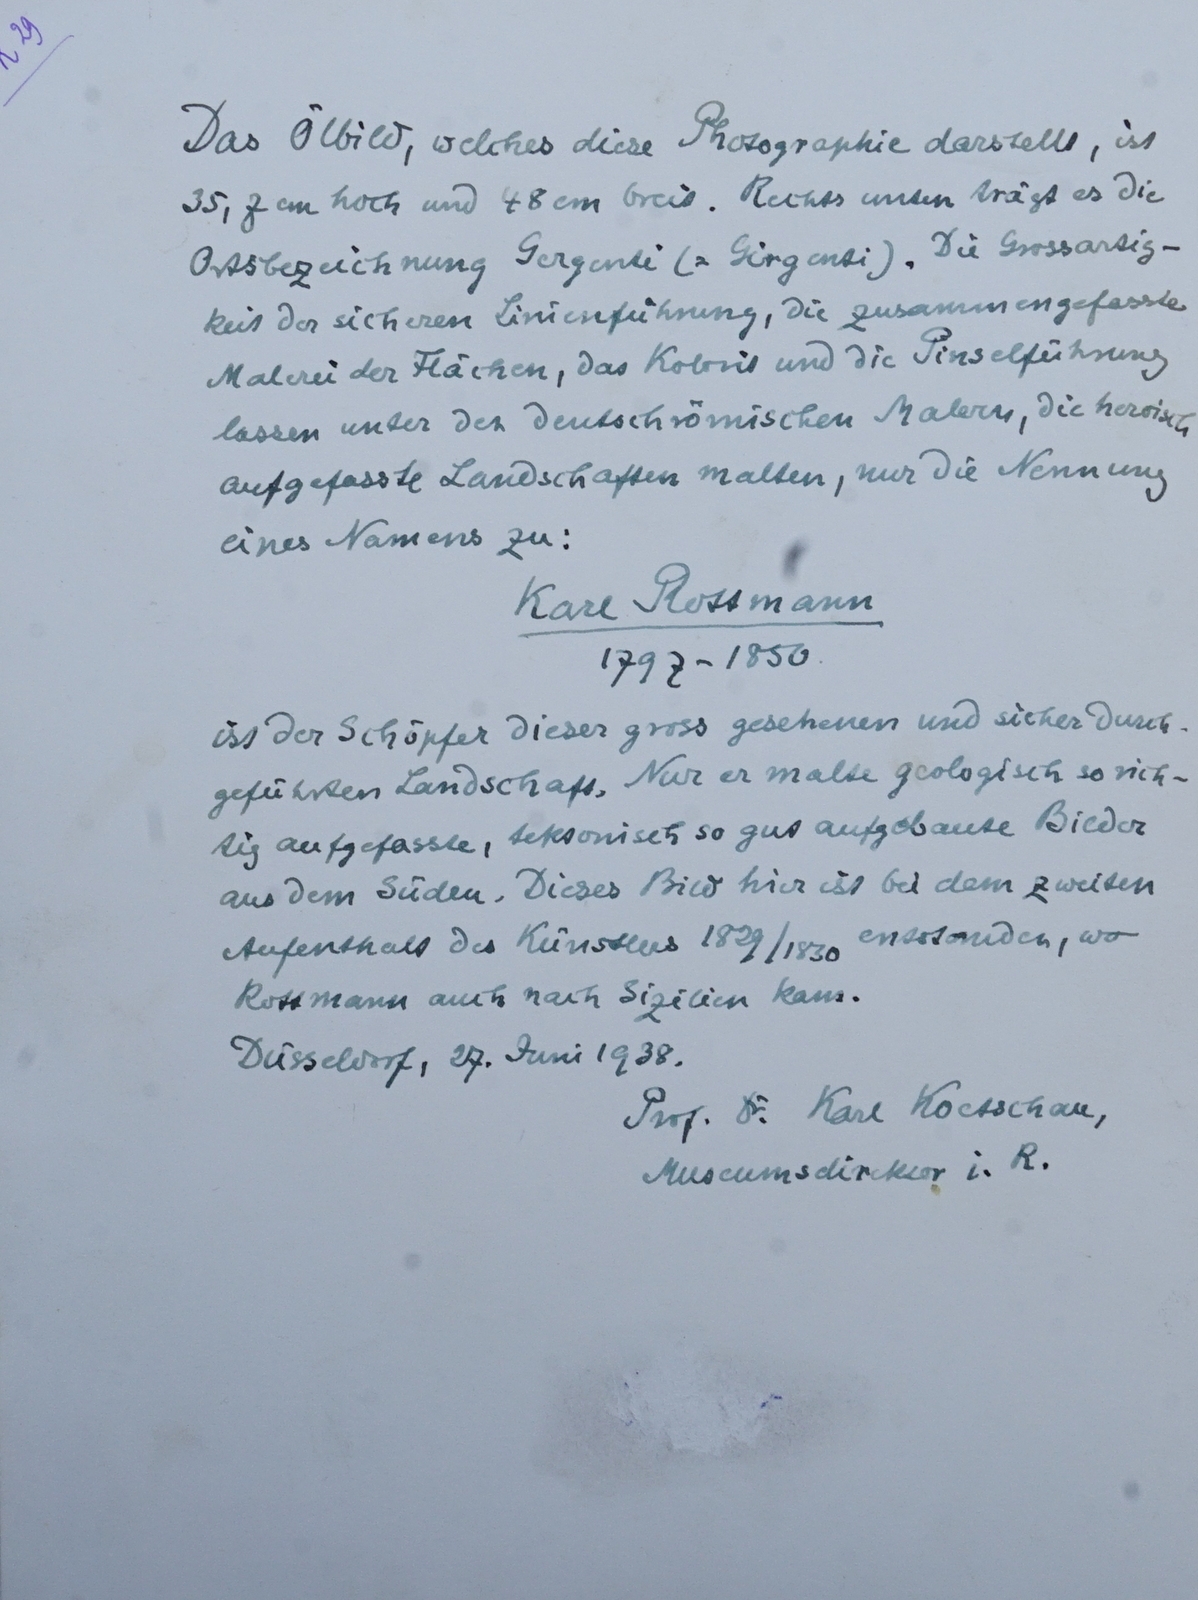 29
Das Ölbild, welches diese Photographie darstellt, ist
35,7 cm hoch und 48 cm breit. Rechts unten trägt es die
Ortsbezeichnung Gergenti (= Girgenti). Die Grossartig-
keit der sicheren Linienführung, die zusammengefasste
Malerei der Flächen, das Kolorit und die Pinselführung
lassen unter den deutschrömischen Malern, die heroisch
aufgefasste Landschaften malten, nur die Nennung
eines Namens zu:
Karl Rottmann
1797-1850.
ist der Schöpfer dieser gross gesehenen und sicher durch-
geführten Landschaft. Nur er malte geologisch so rich-
tig aufgefasste, tektonisch so gut aufgebaute Bilder
aus dem Süden. Dieses Bild hier ist bei dem zweiten
Aufenthalt des Künstlers 1829/1830 entstanden, wo
Rottmann auch nach Sizilien kam.
Düsseldorf, 27. Juni 1938.
Prof. Dr. Karl Koetschau,
Museumsdirektor i. R.